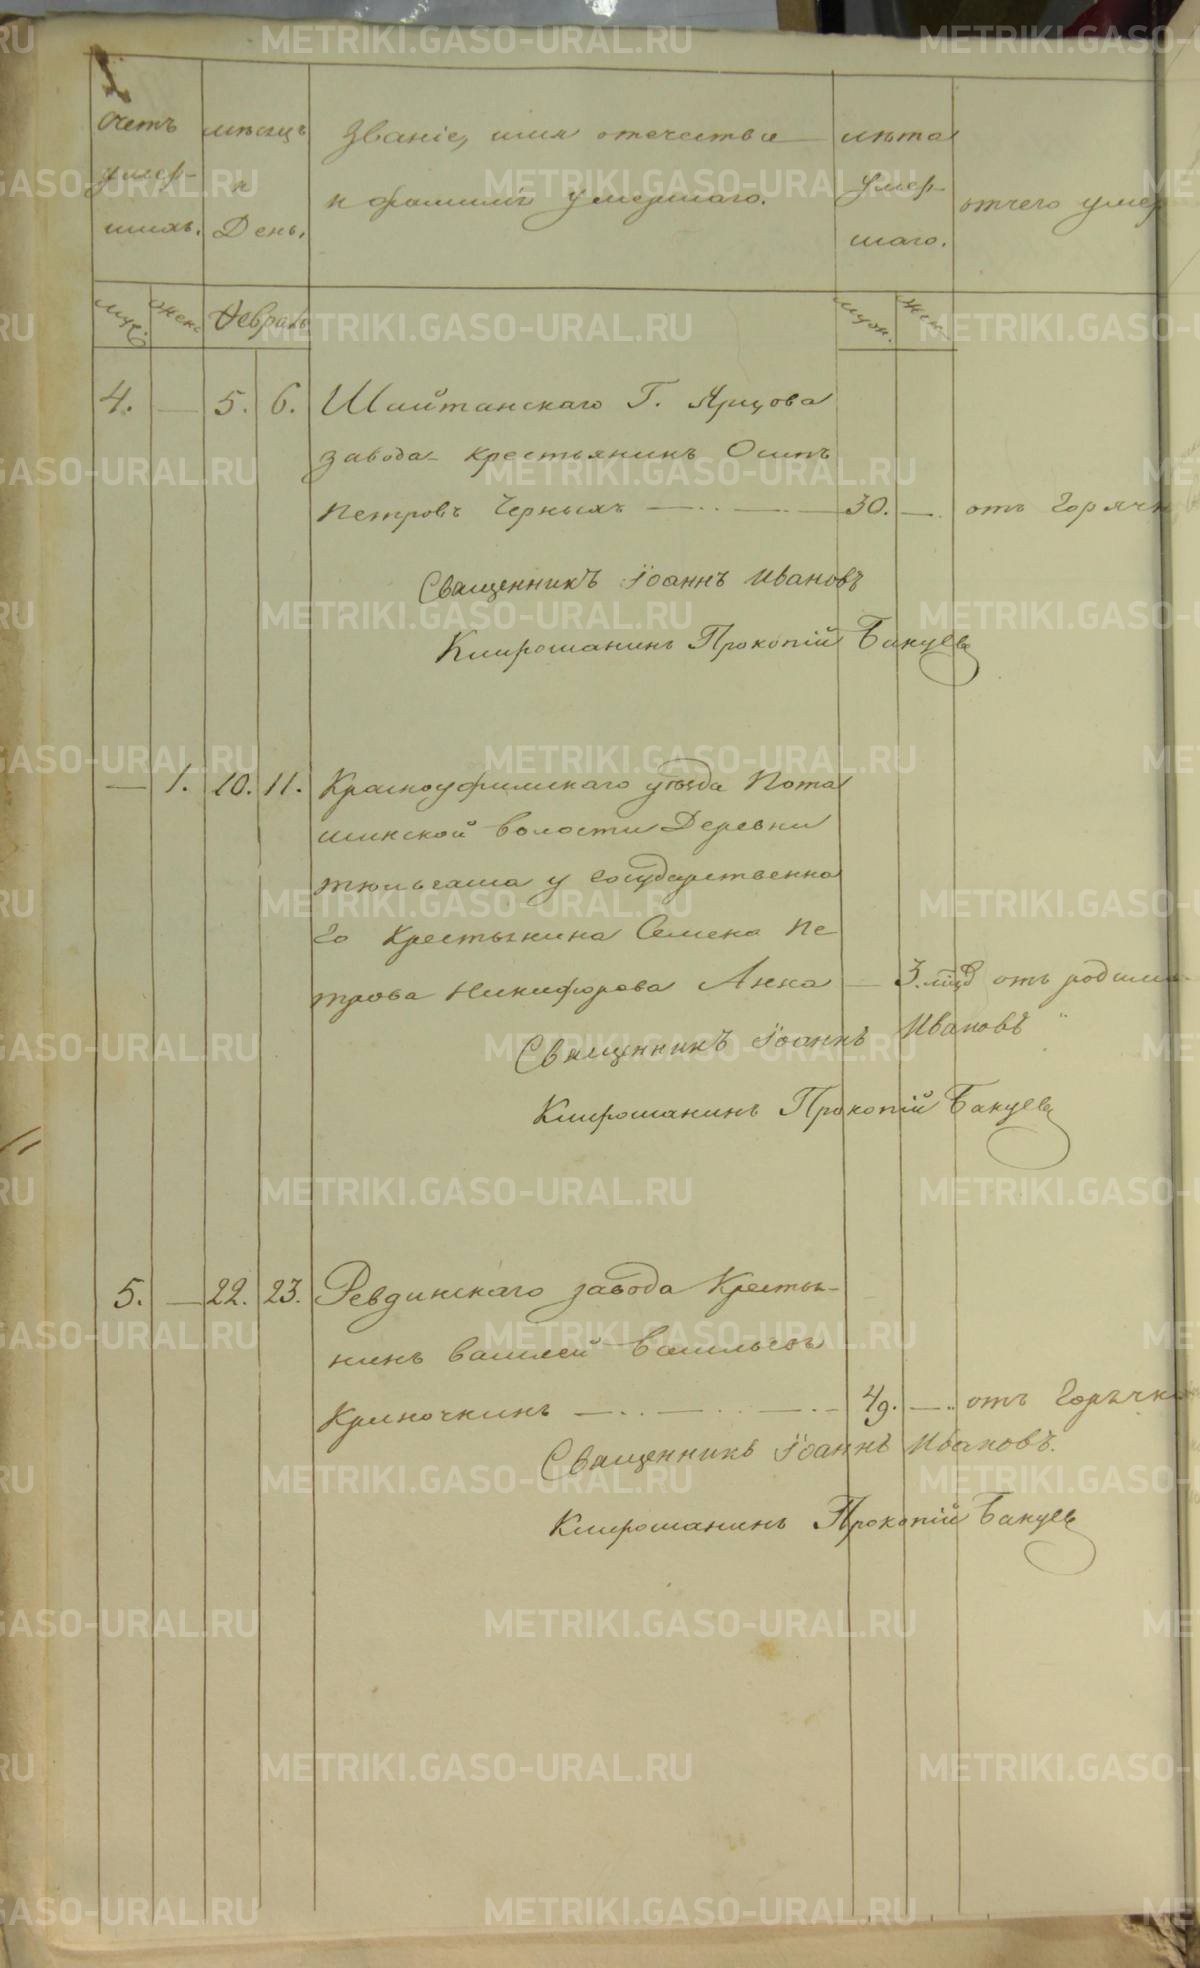 Счетъ умер- шихъ.
мѣсяцъ и День.
Званіе, имя отечества
и фамилія умершаго.
лѣта умер- шаго.
отчего умер
муж. женс Февраль муж. жен.
4. — 5. 6. Шайтанскаго Г. Ярцова
завода крестьянинъ Осипъ
Петровъ Черныхъ — 30. — отъ Горячк
Священникъ Іоаннъ Ивановъ
Прокопій
— 1. 10. 11. Красноуфимскаго уѣзда Пота
шинской волости Деревни
тюльгаша у государственна
го Крестьянина Семена Пе
трова Никифорова Анна — 3. мѣс отъ родим
Священникъ Іоаннъ Ивановъ
Прокопій
5. — 22. 23. Ревдинскаго завода Крестья-
нинъ Василей Васильевъ
Криночкинъ — 49. — отъ Горячк
Священникъ Іоаннъ Ивановъ.
Прокопій
METRIKI.GASO-URAL.RU